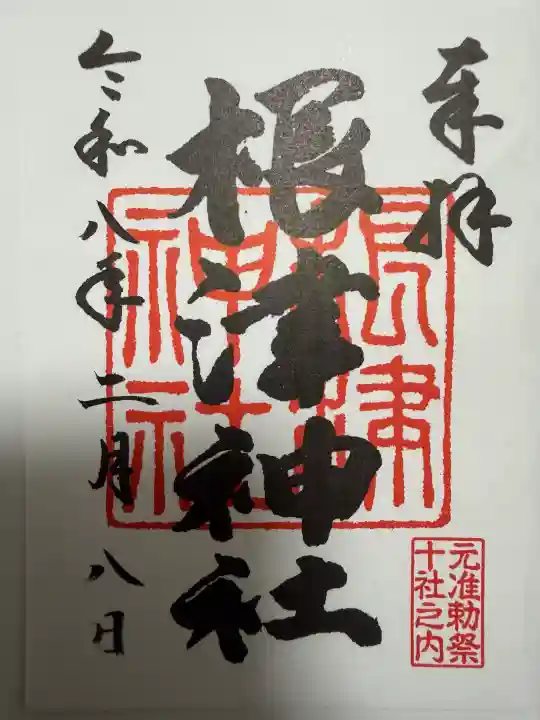 奉拝
根津神社
根津神社
元准勅祭
十社之内
令和八年二月八日